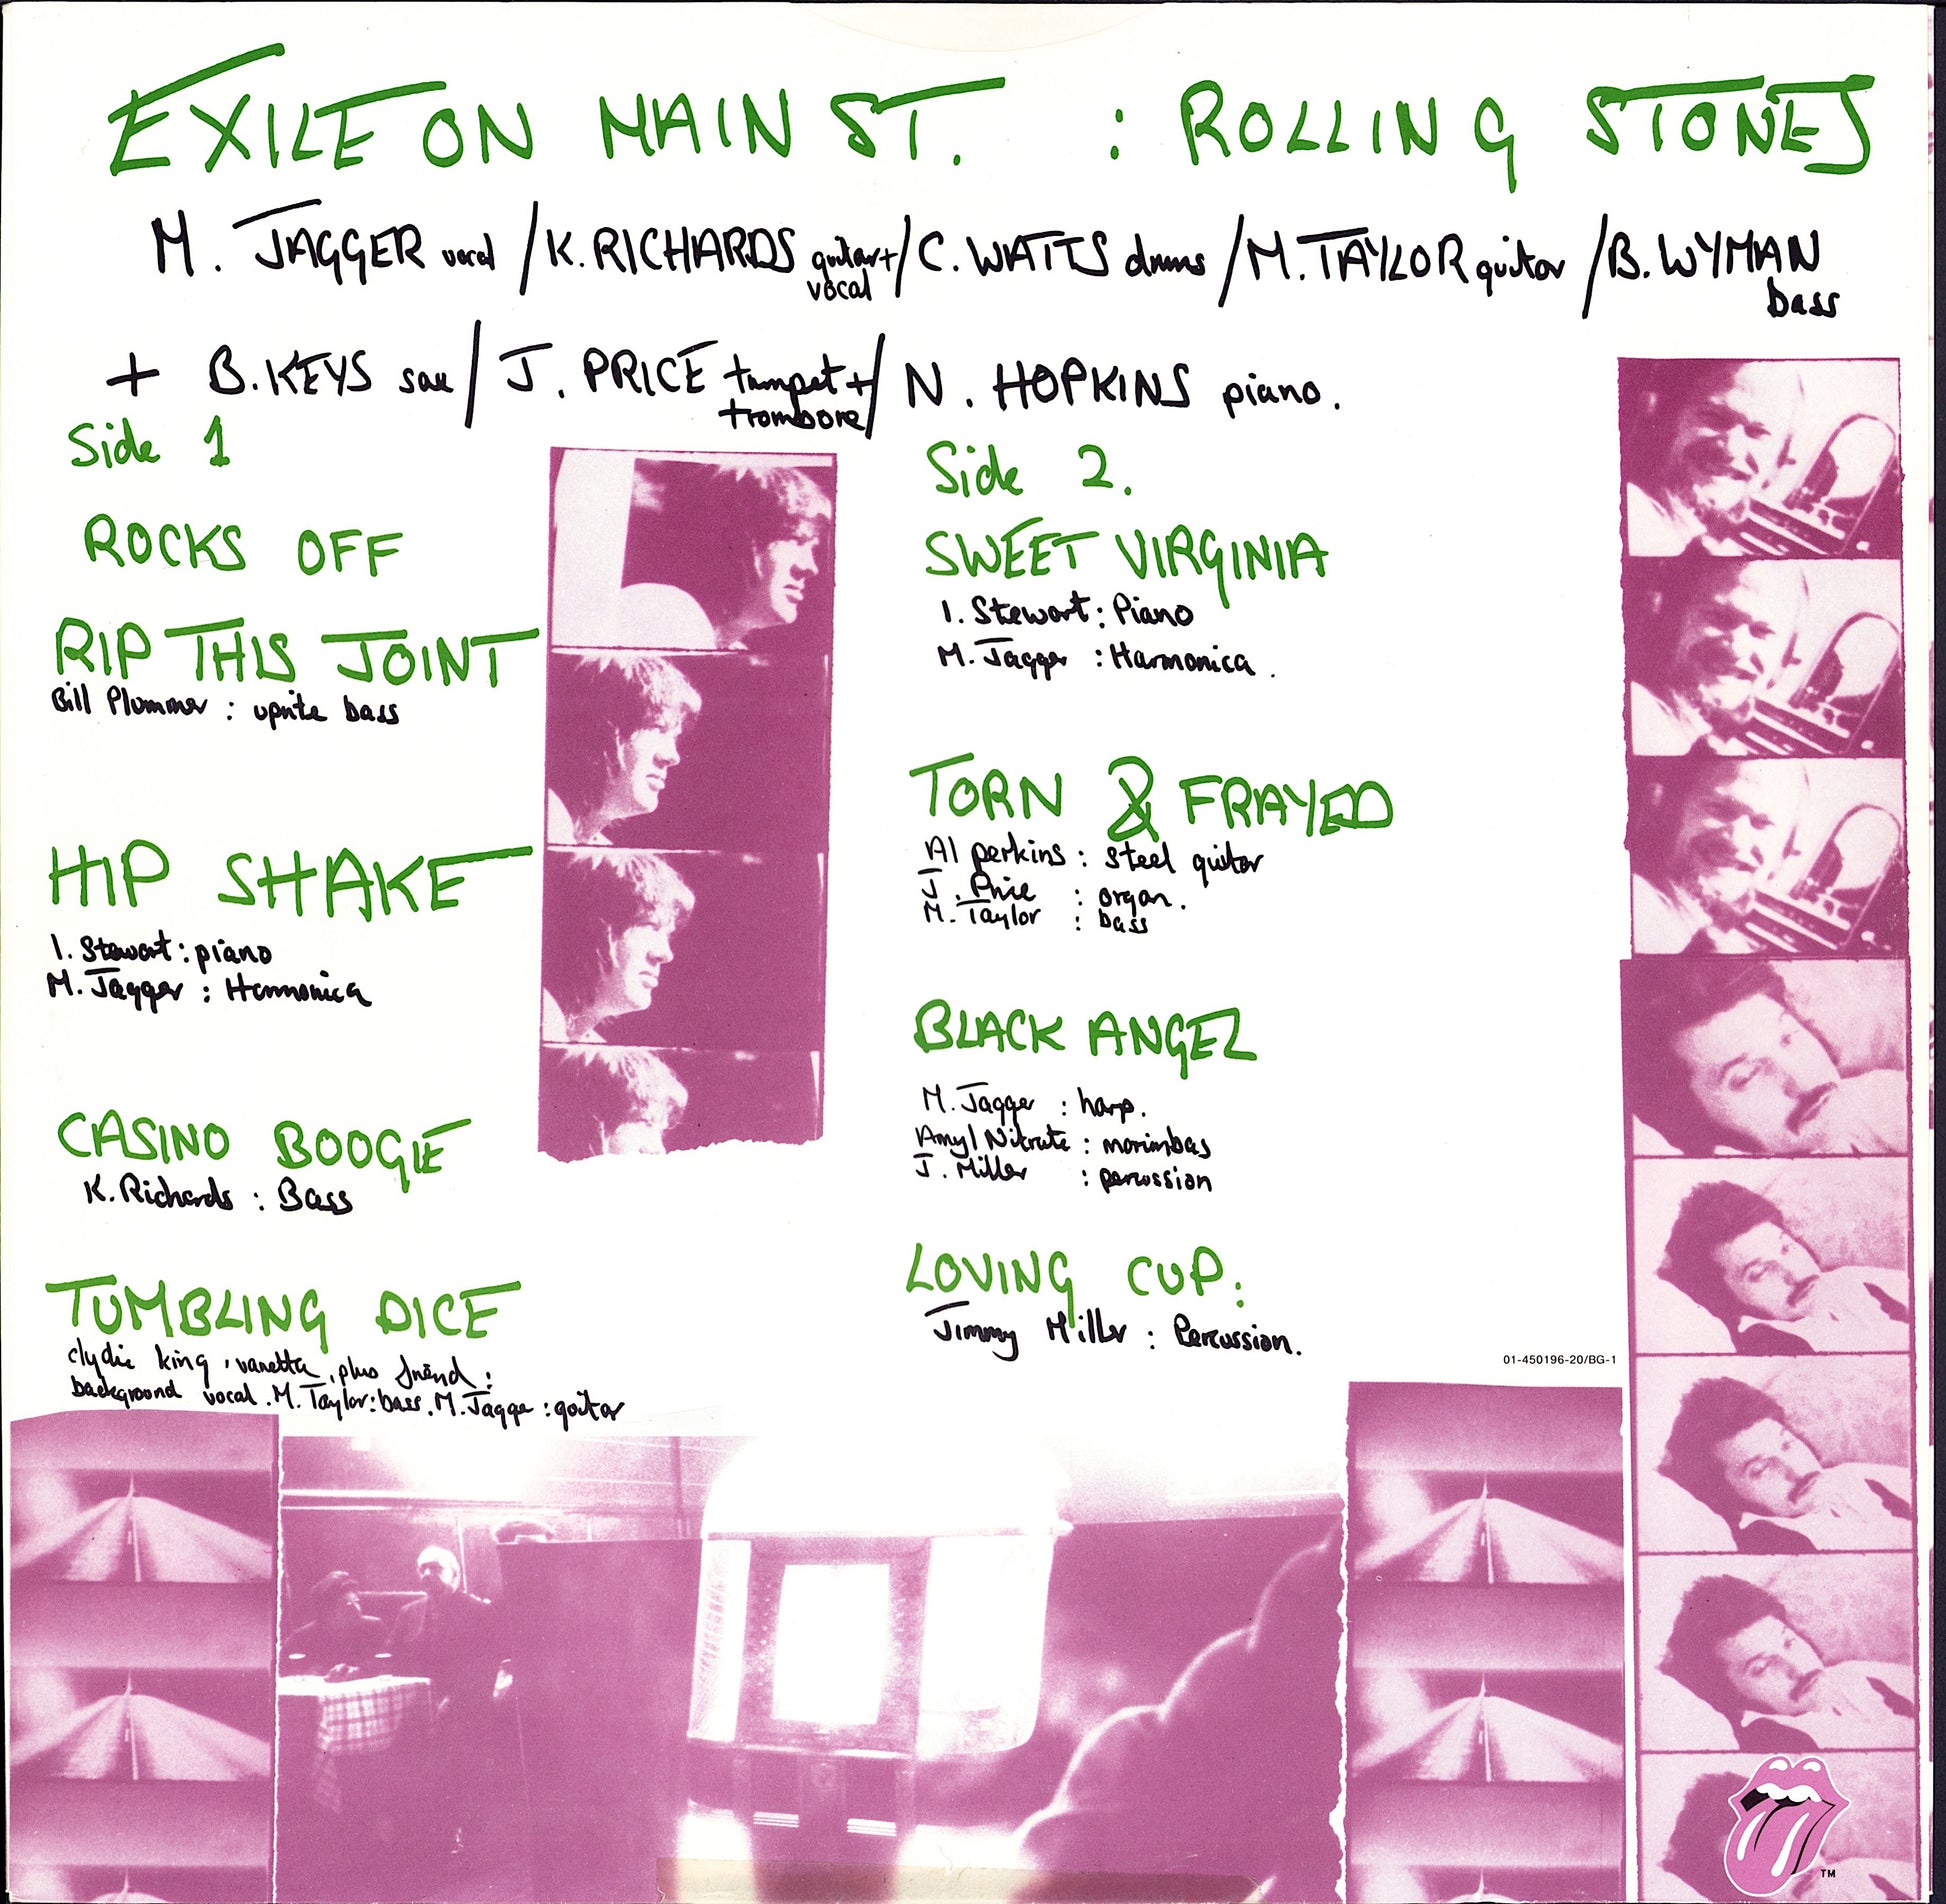 EXILE ON MAIN ST. : ROLLING STONES
M. JAGGER vocal / K. RICHARDS guitar + vocal / C. WATTS drums / M. TAYLOR guitar / B. WYMAN bass
+ B. KEYS sax / J. PRICE trumpet + trombone / N. HOPKINS piano.
Side 1
ROCKS OFF
RIP THIS JOINT
Bill Plummer : uprite bass
HIP SHAKE
I. Stewart : piano
M. Jagger : Harmonica
CASINO BOOGIE
K. Richards : Bass
TUMBLING DICE
clydie king, vanetta, plus friend :
background vocal. M. Taylor : bass. M. Jagger : guitar
Side 2.
SWEET VIRGINIA
I. Stewart : Piano
M. Jagger : Harmonica.
TORN & FRAYED
Al perkins : steel guitar
J. Price : organ.
M. Taylor : bass
BLACK ANGEL
M. Jagger : harp.
Amyl Nitrate : marimbas
J. Miller : percussion
LOVING CUP.
Jimmy Miller : Percussion.
01-450196-20/BG-1
TM